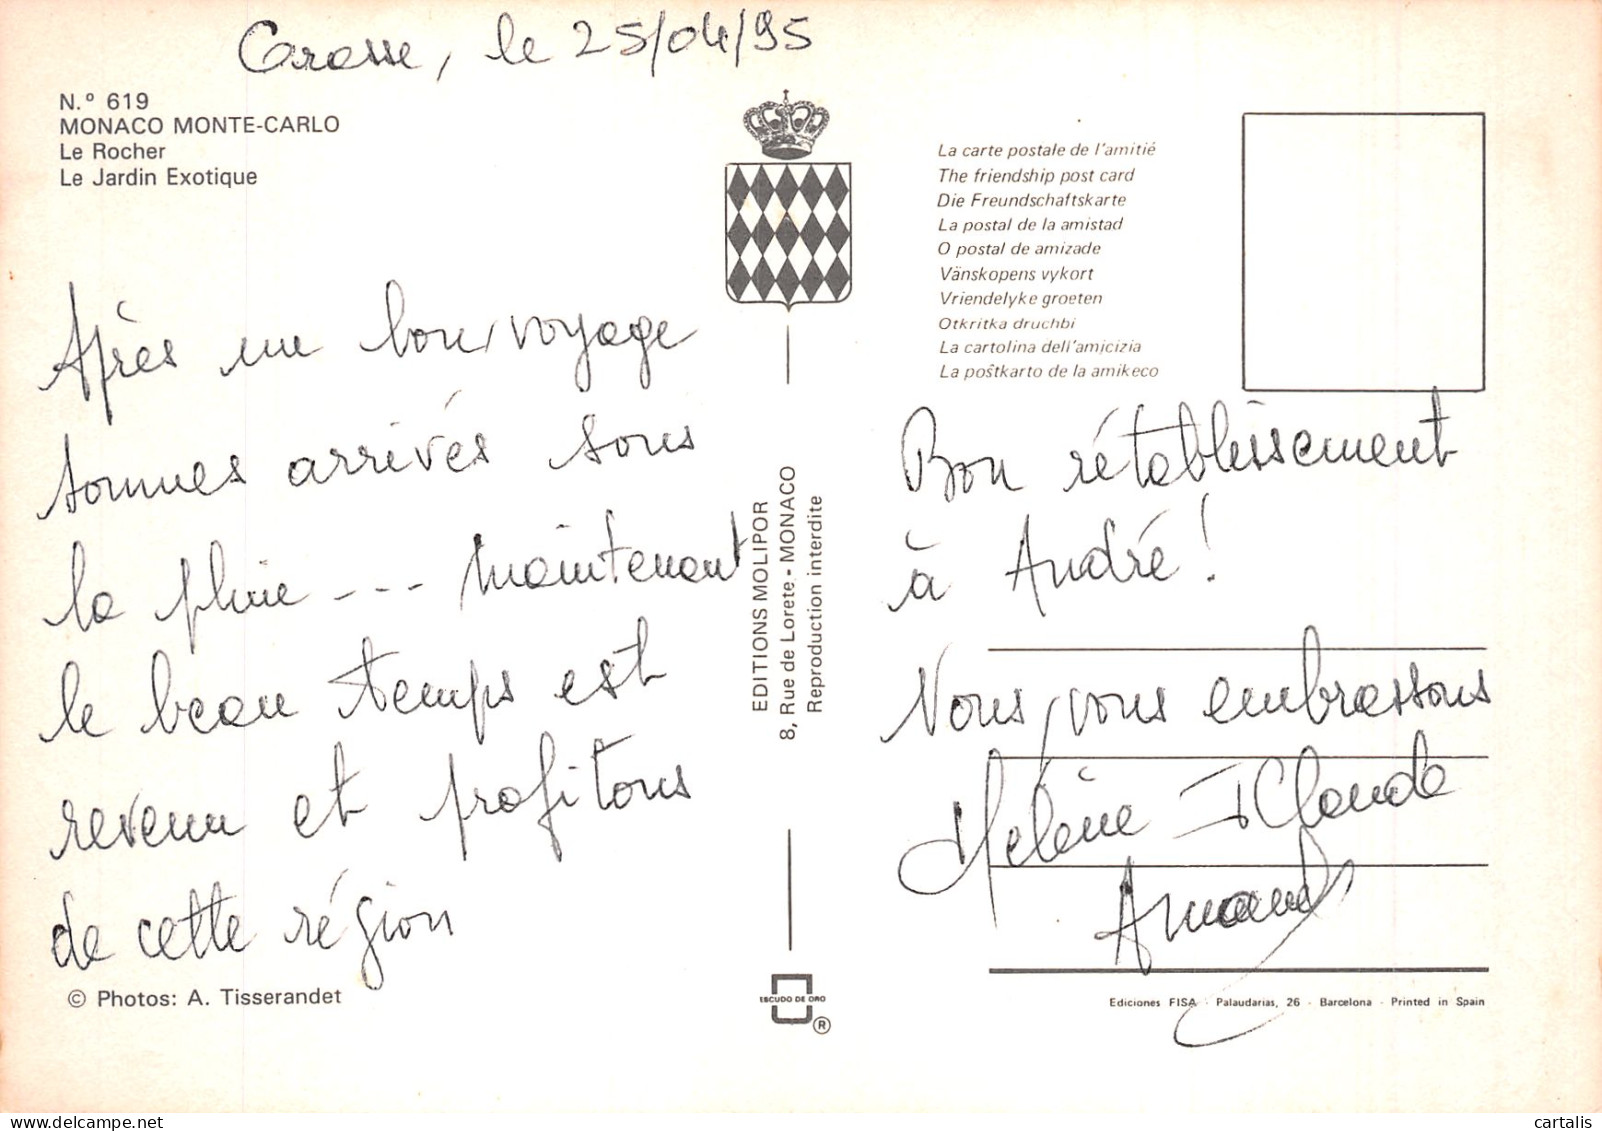 Grasse, le 25/04/95
N.º 619
MONACO MONTE-CARLO
Le Rocher
Le Jardin Exotique
Après un bon voyage
sommes arrivés sous
la pluie --- maintenant
le beau temps est
revenu et profitons
de cette région
© Photos: A. Tisserandet
EDITIONS MOLIPOR
8, Rue de Lorete - MONACO
Reproduction interdite
ESCUDO DE ORO
®
La carte postale de l'amitié
The friendship post card
Die Freundschaftskarte
La postal de la amistad
O postal de amizade
Vänskopens vykort
Vriendelyke groeten
Otkritka druchbi
La cartolina dell'amicizia
La poŝtkarto de la amikeco
Bon rétablissement
à André!
Nous vous embrassons
Hélène Claude
Armand
Ediciones FISA - Palaudarias, 26 - Barcelona - Printed in Spain
delcampe.net
cartalis